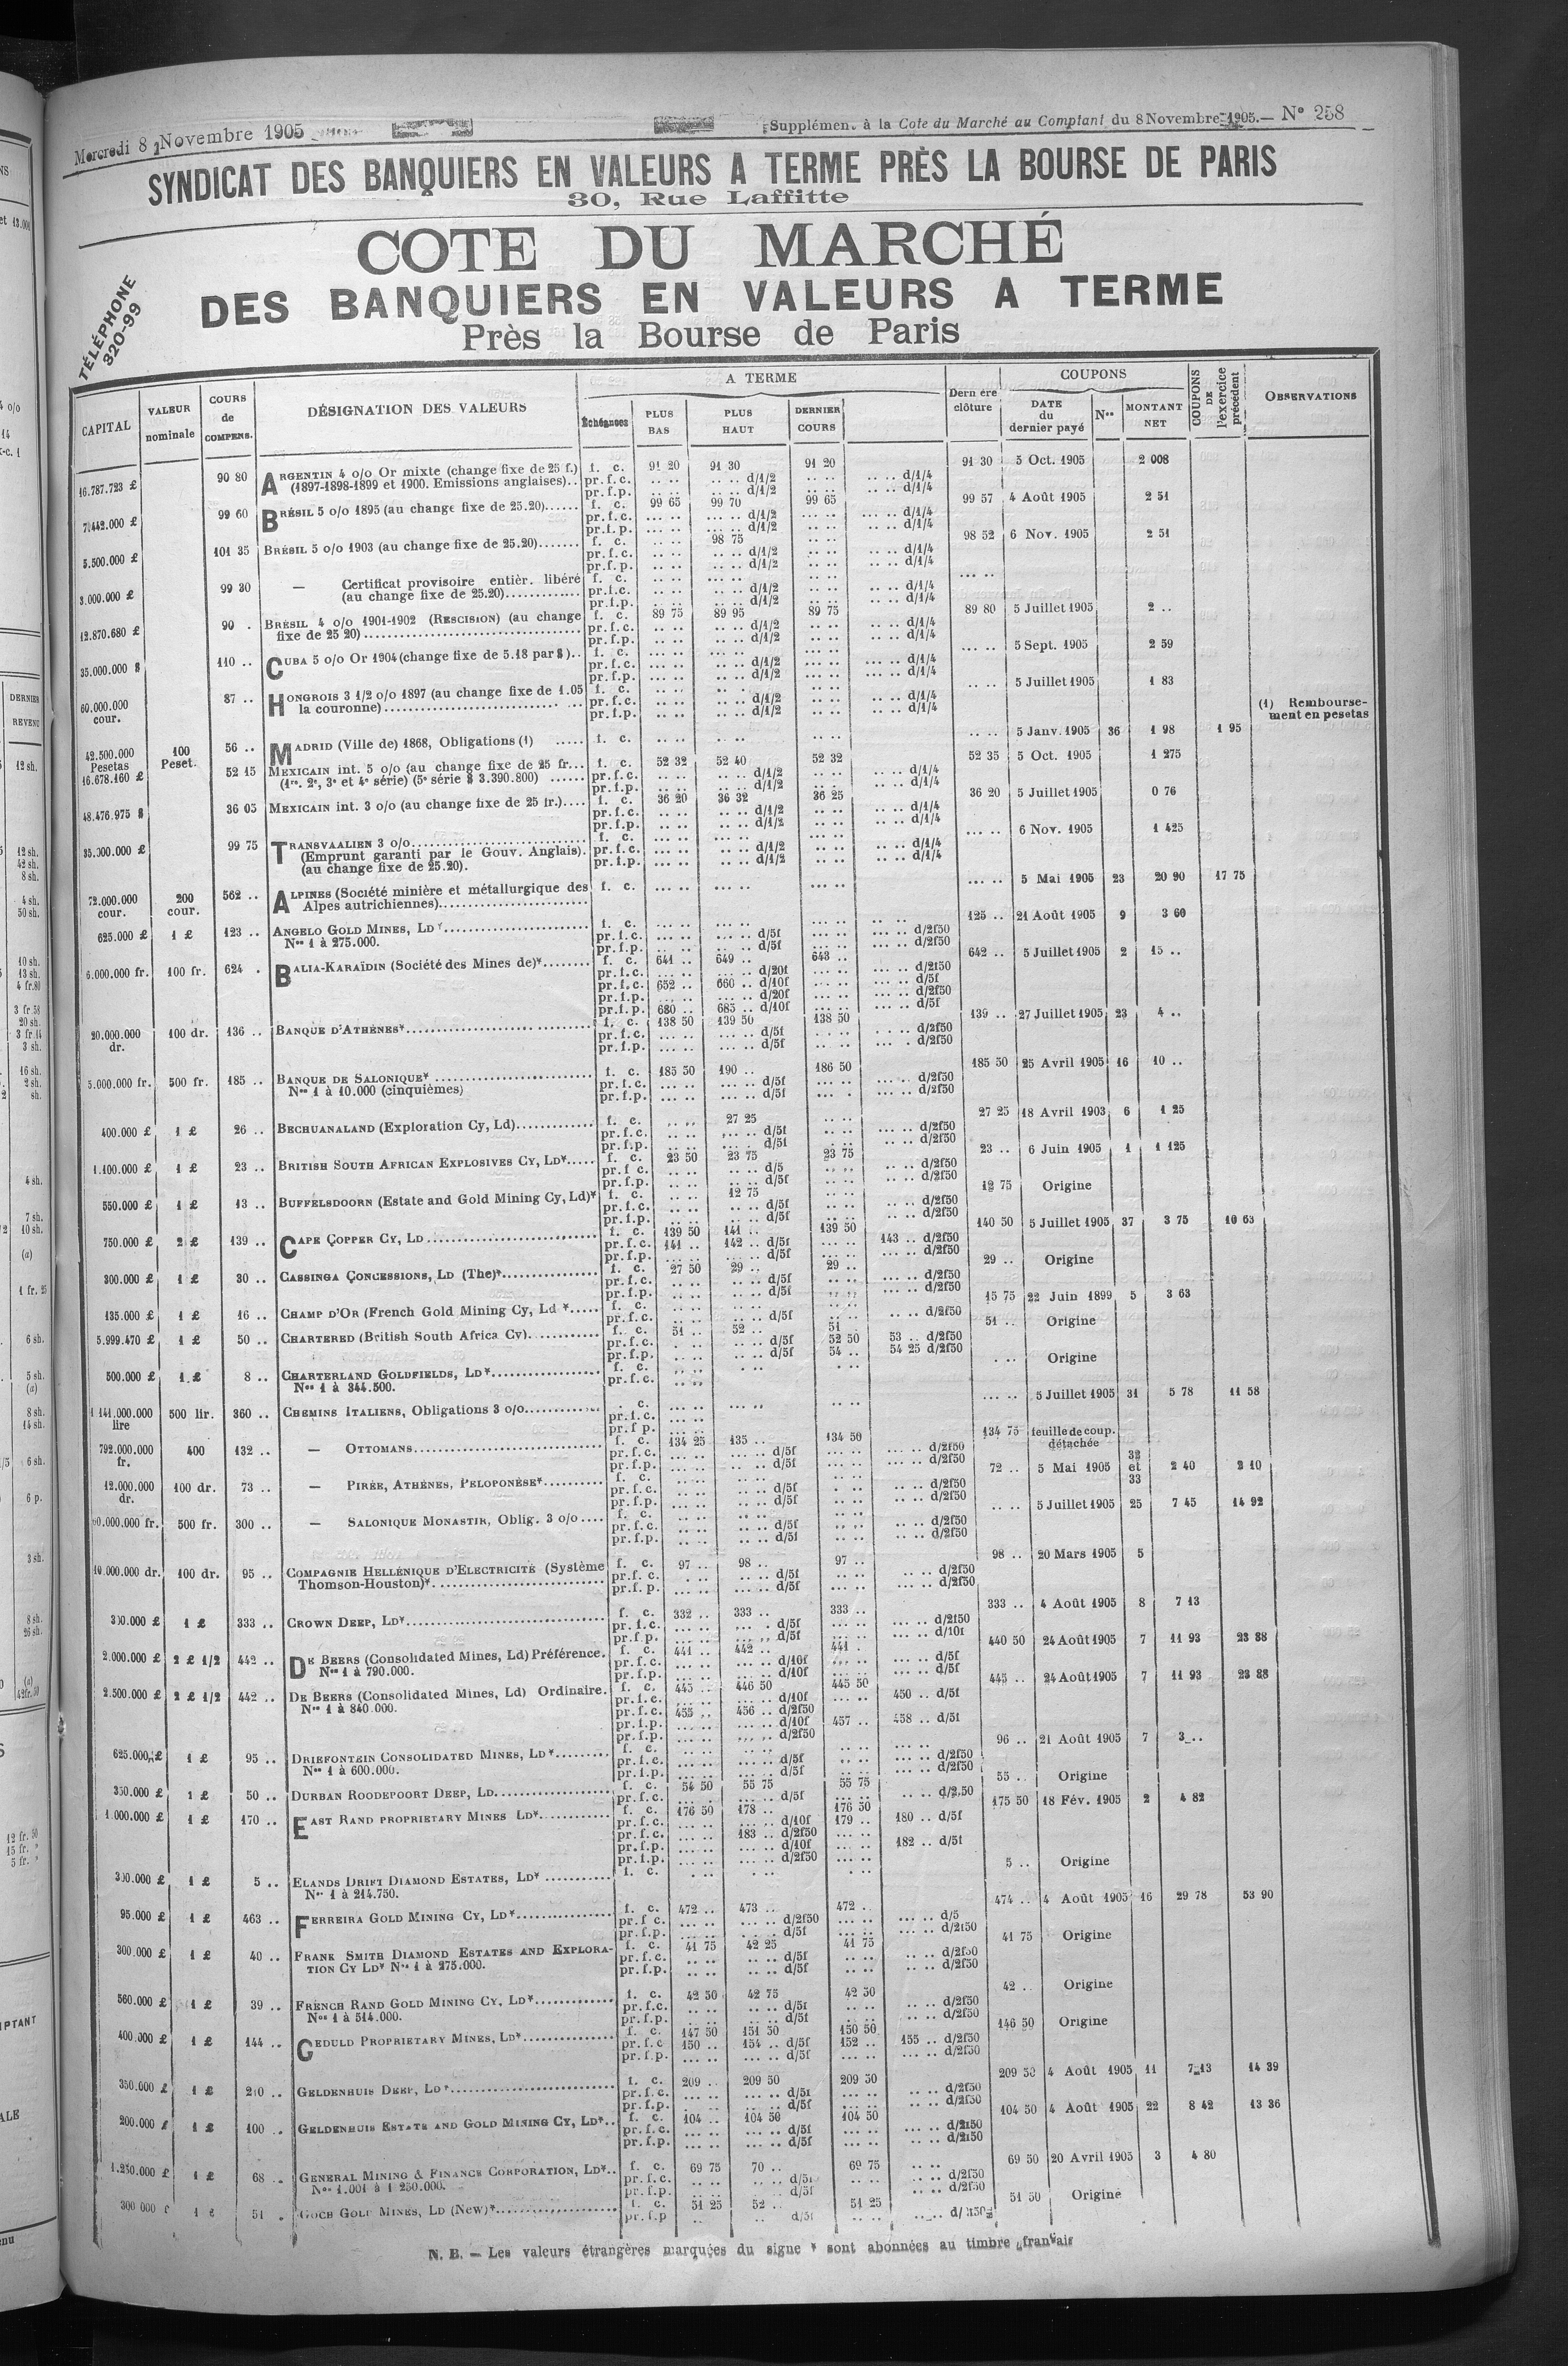 Mercredi 8 Novembre 1905
Supplément à la Cote du Marché au Comptant du 8 Novembre 1905.— N° 258
SYNDICAT DES BANQUIERS EN VALEURS A TERME PRÈS LA BOURSE DE PARIS
30, Rue Laffitte
COTE DU MARCHÉ
DES BANQUIERS EN VALEURS A TERME
Près la Bourse de Paris
TÉLÉPHONE
320-99
CAPITAL VALEUR nominale COURS de COMPENS. DÉSIGNATION DES VALEURS A TERME Échéances PLUS BAS PLUS HAUT DERNIER COURS Dernière clôture COUPONS DATE du dernier payé Nos MONTANT NET COUPONS DE l'exercice précédent OBSERVATIONS
16.787.723 £ 90 80 ARGENTIN 4 o/o Or mixte (change fixe de 25 f.) f. c. 91 20 91 30 91 20 91 30 5 Oct. 1905 2 008
(1897-1898-1899 et 1900. Emissions anglaises).. pr.f.c. d/1/2 d/1/4
pr.f.p. d/1/2 d/1/4
99 60 BRÉSIL 5 o/o 1895 (au change fixe de 25.20)...... f. c. 99 65 99 70 99 65 99 57 4 Août 1905 2 51
pr.f.c. d/1/2 d/1/4
pr.f.p. d/1/2 d/1/4
5.500.000 £ 101 35 BRÉSIL 5 o/o 1903 (au change fixe de 25.20)....... f. c. 98 75 98 52 6 Nov. 1905 2 51
pr.f.c. d/1/2 d/1/4
pr.f.p. d/1/2 d/1/4
3.000.000 £ 99 30 — Certificat provisoire entièr. libéré f. c.
(au change fixe de 25.20)............. pr.f.c. d/1/2 d/1/4
pr.f.p. d/1/2 d/1/4
12.870.680 £ 90 . BRÉSIL 4 o/o 1901-1902 (RESCISION) (au change f. c. 89 75 89 95 89 75 89 80 5 Juillet 1905 2 ..
fixe de 25 20)........ pr.f.c. d/1/2 d/1/4
pr.f.p. d/1/2 d/1/4
35.000.000 $ 110 .. CUBA 5 o/o Or 1904 (change fixe de 5.18 par $).. f. c. 5 Sept. 1905 2 59
pr.f.c. d/1/2 d/1/4
pr.f.p. d/1/2 d/1/4
60.000.000 cour. 87 .. HONGROIS 3 1/2 o/o 1897 (au change fixe de 1.05 f. c. 5 Juillet 1905 1 83
la couronne)........ pr.f.c. d/1/2 d/1/4
pr.f.p. d/1/2 d/1/4
42.500.000 Pesetas 100 Peset. 56 .. MADRID (Ville de) 1868, Obligations (1) ..... f. c. 5 Janv. 1905 36 1 98 1 95 (1) Remboursement en pesetas
16.678.160 £ 52 15 MEXICAIN int. 5 o/o (au change fixe de 25 fr... f. c. 52 32 52 40 52 32 52 35 5 Oct. 1905 1 275
(1re, 2e, 3e et 4e série) (5e série $ 3.390.800) ...... pr.f.c. d/1/2 d/1/4
pr.f.p. d/1/2 d/1/4
48.476.975 $ 36 05 MEXICAIN int. 3 o/o (au change fixe de 25 fr.).... f. c. 36 20 36 32 36 25 36 20 5 Juillet 1905 0 76
pr.f.c. d/1/2 d/1/4
pr.f.p. d/1/2 d/1/4
35.000.000 £ 99 75 TRANSVAALIEN 3 o/o........ f. c. 6 Nov. 1905 1 425
(Emprunt garanti par le Gouv. Anglais). pr.f.c. d/1/2 d/1/4
(au change fixe de 25.20). pr.f.p. d/1/2 d/1/4
72.000.000 cour. 200 cour. 562 .. ALPINES (Société minière et métallurgique des f. c. 5 Mai 1905 23 20 90 17 75
Alpes autrichiennes)........
625.000 £ 1 £ 123 .. ANGELO GOLD MINES, LD*........ f. c. 125 .. 21 Août 1905 9 3 60
Nos 1 à 275.000. pr.f.c. d/5f d/2f50
pr.f.p. d/5f d/2f50
6.000.000 fr. 100 fr. 624 . BALIA-KARAÏDIN (Société des Mines de)*........ f. c. 641 .. 649 .. 643 .. 642 .. 5 Juillet 1905 2 15 ..
pr.f.c. d/20f d/2f50
pr.f.c. 652 .. 660 .. d/10f d/5f
pr.f.p. d/20f d/2f50
pr.f.p. 680 .. 685 .. d/10f d/5f
20.000.000 dr. 100 dr. 136 .. BANQUE D'ATHÈNES*........ f. c. 138 50 139 50 138 50 139 .. 27 Juillet 1905 23 4 ..
pr.f.c. d/5f d/2f50
pr.f.p. d/5f d/2f50
5.000.000 fr. 500 fr. 185 .. BANQUE DE SALONIQUE* ........ f. c. 185 50 190 .. 186 50 185 50 25 Avril 1905 16 10 ..
Nos 1 à 10.000 (cinquièmes) pr.f.c. d/5f d/2f50
pr.f.p. d/5f d/2f50
400.000 £ 1 £ 26 .. BECHUANALAND (Exploration Cy, Ld)........ f. c. 27 25 27 25 18 Avril 1903 6 1 25
pr.f.c. d/5f d/2f50
pr.f.p. d/5f d/2f50
1.100.000 £ 1 £ 23 .. BRITISH SOUTH AFRICAN EXPLOSIVES CY, LD*..... f. c. 23 50 23 75 23 75 23 .. 6 Juin 1905 1 1 125
pr.f.c. d/5 d/2f50
pr.f.p. d/5f d/2f50
550.000 £ 1 £ 13 .. BUFFELSDOORN (Estate and Gold Mining Cy, Ld)* f. c. 12 75 12 75 Origine
pr.f.c. d/5f d/2f50
pr.f.p. d/5f d/2f50
750.000 £ 2 £ 139 .. CAPE COPPER CY, LD ........ f. c. 139 50 141 .. 139 50 140 50 5 Juillet 1905 37 3 75 10 63
pr.f.c. 141 .. 142 .. d/5f 143 .. d/2f50
pr.f.p. d/5f d/2f50
300.000 £ 1 £ 30 .. CASSINGA CONCESSIONS, LD (The)*........ f. c. 27 50 29 .. 29 .. 29 .. Origine
pr.f.c. d/5f d/2f50
pr.f.p. d/5f d/2f50
135.000 £ 1 £ 16 .. CHAMP D'OR (French Gold Mining Cy, Ld *..... f. c. 15 75 22 Juin 1899 5 3 63
pr.f.c. d/5f d/2f50
5.999.470 £ 1 £ 50 .. CHARTERED (British South Africa Cy)........ f. c. 51 .. 52 .. 51 .. 51 .. Origine
pr.f.c. d/5f 52 50 53 .. d/2f50
pr.f.p. d/5f 54 .. 54 25 d/2f50
500.000 £ 1 £ 8 .. CHARTERLAND GOLDFIELDS, LD*........ f. c. Origine
Nos 1 à 344.500. pr.f.c.
1 141.000.000 lire 500 lir. 360 .. CHEMINS ITALIENS, Obligations 3 o/o........ c. 5 Juillet 1905 31 5 78 11 58
pr.f.c.
pr.f p.
792.000.000 fr. 400 132 .. — OTTOMANS........ f. c. 134 25 135 .. 134 50 134 75 feuille de coup. détachée
pr.f.c. d/5f d/2f50
pr.f.p. d/5f d/2f50
12.000.000 dr. 100 dr. 73 .. — PIRÉE, ATHÈNES, PELOPONÈSE*........ f. c. 72 .. 5 Mai 1905 32 et 33 2 40 2 10
pr.f.c. d/5f d/2f50
pr.f.p. d/5f d/2f50
500 fr. 300 .. — SALONIQUE MONASTIR, Oblig. 3 o/o.... f. c. 5 Juillet 1905 25 7 45 14 92
pr.f.c. d/5f d/2f50
pr.f.p. d/5f d/2f50
10.000.000 dr. 100 dr. 95 .. COMPAGNIE HELLÉNIQUE D'ELECTRICITÉ (Système f. c. 97 .. 98 .. 97 .. 98 .. 20 Mars 1905 5
Thomson-Houston)*........ pr.f.c. d/5f d/2f50
pr.f.p. d/5f d/2f50
300.000 £ 1 £ 333 .. CROWN DEEP, LD*........ f. c. 332 .. 333 .. 333 .. 333 .. 4 Août 1905 8 7 13
pr.f.c. d/5f d/2f50
pr.f.p. d/5f d/10f
2.000.000 £ 2 £ 1/2 442 .. DE BEERS (Consolidated Mines, Ld) Préférence. f. c. 441 .. 442 .. 441 . 440 50 24 Août 1905 7 11 93 23 88
Nos 1 à 790.000. pr.f.c. d/10f d/5f
pr.f.p. d/10f d/5f
2.500.000 £ 2 £ 1/2 442 .. DE BEERS (Consolidated Mines, Ld) Ordinaire. f. c. 445 .. 446 50 445 50 445 .. 24 Août 1905 7 11 93 23 88
Nos 1 à 840.000. pr.f.c. d/10f 450 .. d/5f
pr.f.c. 455 .. 456 .. d/2f50
pr.f.p. d/10f 457 .. 458 .. d/5f
pr.f.p. d/2f50
625.000 £ 1 £ 95 .. DRIEFONTEIN CONSOLIDATED MINES, LD*........ f. c. 96 .. 21 Août 1905 7 3 ..
Nos 1 à 600.000. pr.f.c. d/5f d/2f50
pr.f.p. d/5f d/2f50
350.000 £ 1 £ 50 .. DURBAN ROODEPOORT DEEP, LD........ f. c. 54 50 55 75 55 75 55 .. Origine
pr.f.c. d/5f d/2.50
1.000.000 £ 1 £ 170 .. EAST RAND PROPRIETARY MINES LD*........ f. c. 176 50 178 .. 176 50 175 50 18 Fév. 1905 2 4 82
pr.f.c. d/10f 179 .. 180 .. d/5f
pr.f.c. 183 .. d/2f50
pr.f.p. d/10f 182 .. d/5f
pr.f.p. d/2f50
300.000 £ 1 £ 5 .. ELANDS DRIFT DIAMOND ESTATES, LD* ........ f. c. 5 .. Origine
Nos 1 à 214.750.
95.000 £ 1 £ 463 .. FERREIRA GOLD MINING CY, LD*........ f. c. 472 .. 473 .. 472 .. 474 .. 4 Août 1905 16 29 78 53 90
pr.f c. d/2f50 d/5
pr.f.p. d/5f d/2f50
300.000 £ 1 £ 40 .. FRANK SMITH DIAMOND ESTATES AND EXPLORA- f. c. 41 75 42 25 41 75 41 75 Origine
TION CY LD* Nos 1 à 275.000. pr.f.c. d/5f d/2f50
pr.f.p. d/5f d/2f50
560.000 £ 1 £ 39 .. FRENCH RAND GOLD MINING CY, LD*........ f. c. 42 50 42 75 42 50 42 .. Origine
Nos 1 à 514.000. pr.f.c. d/5f d/2f50
pr.f.p. d/5f d/2f50
400.000 £ 1 £ 144 .. GEDULD PROPRIETARY MINES, LD*........ f. c. 147 50 151 50 150 50 146 50 Origine
pr.f.c 150 .. 154 .. d/5f 152 .. 155 .. d/2f50
pr.f.p. d/5f d/2f50
350.000 £ 1 £ 210 .. GELDENHUIS DEEP, LD*........ f. c. 209 .. 209 50 209 50 209 50 4 Août 1905 11 7 13 14 39
pr.f.c. d/5f d/2f50
pr.f.p. d/5f d/2f50
200.000 £ 1 £ 100 .. GELDENHUIS ESTATE AND GOLD MINING CY, LD*.. f. c. 104 .. 104 50 104 50 104 50 4 Août 1905 22 8 42 13 36
pr.f.c. d/5f d/2f50
pr.f.p. d/5f d/2f50
1.250.000 £ 1 £ 68 .. GENERAL MINING & FINANCE CORPORATION, LD*.. f. c. 69 75 70 .. 69 75 69 50 20 Avril 1905 3 4 80
Nos 1.001 à 1 250.000. pr.f.c. d/5f d/2f50
pr.f.p. d/5f d/2f50
300 000 £ 1 £ 51 . GOCH GOLD MINES, LD (New)*........ f. c. 51 25 52 .. 51 25 51 50 Origine
pr.f.p d/5f
N. B. — Les valeurs étrangères marquées du signe * sont abonnées au timbre français